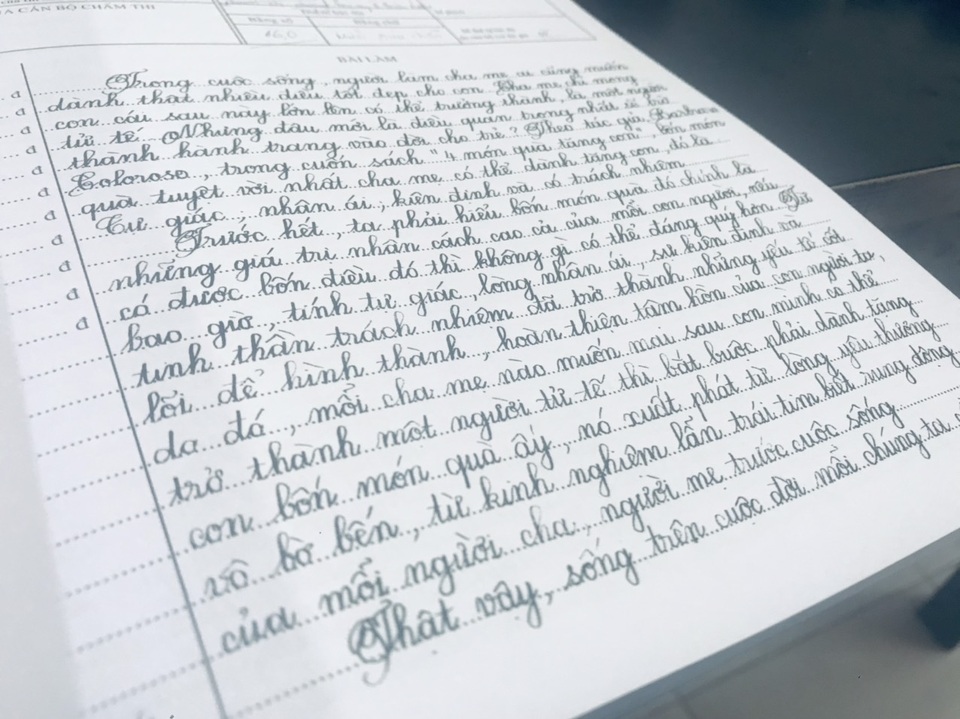 A CÁN BỘ CHẤM THI
Bằng số
Bằng chữ
16,0
BÀI LÀM
Trong cuộc sống, người làm cha mẹ ai cũng muốn
dành thật nhiều điều tốt đẹp cho con. Cha mẹ chỉ mong
con cái sau này lớn lên có thể trưởng thành, là một người
tử tế. Nhưng đâu mới là điều quan trọng nhất để
thành hành trang vào đời cho trẻ? Theo tác giả Barbara
Coloroso, trong cuốn sách "4 món quà tặng con", bốn món
quà tuyệt vời nhất cha mẹ có thể dành tặng con, đó là
Tự giác, nhân ái, kiên định và có trách nhiệm.
Trước hết, ta phải hiểu bốn món quà đó chính là
những giá trị nhân cách cao cả của mỗi con người, nếu
có được bốn điều đó thì không gì có thể đáng quý hơn. Từ
bao giờ, tính tự giác, lòng nhân ái, sự kiên định và
tinh thần trách nhiệm đã trở thành những yếu tố cốt
lõi để hình thành, hoàn thiện tâm hồn của con người ta.
Do đó, mỗi cha mẹ nào muốn mai sau con mình có thể
trở thành một người tử tế thì bắt buộc phải dành tặng
con bốn món quà ấy, nó xuất phát từ lòng yêu thương
vô bờ bến, từ kinh nghiệm lẫn trái tim biết rung động
của mỗi người cha, người mẹ trước cuộc sống.
Thật vậy, sống trên cuộc đời mỗi chúng ta
đ
đ
đ
đ
đ
đ
đ
đ
đ